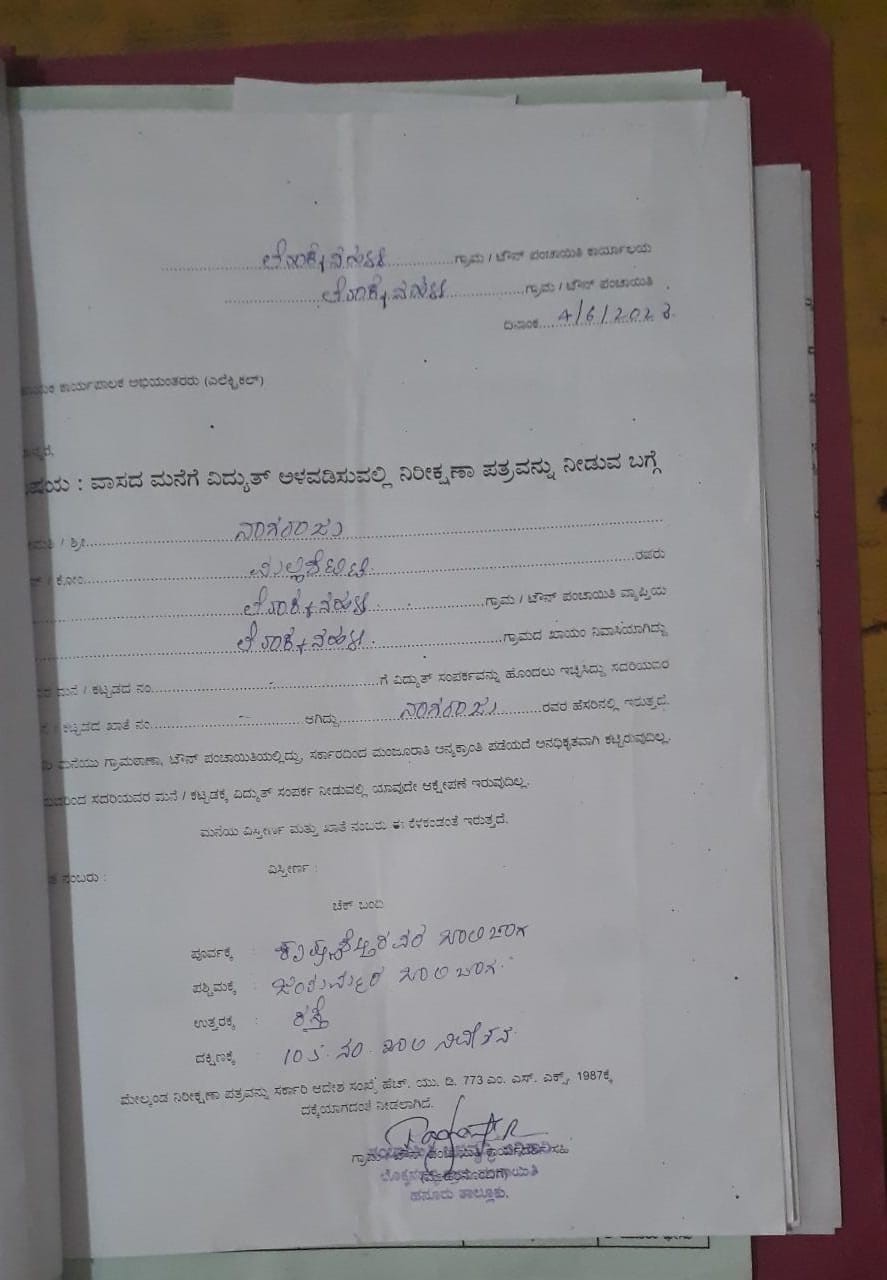 ಲೊಕ್ಕನಹಳ್ಳಿ ಗ್ರಾಮ / ಟೌನ್ ಪಂಚಾಯಿತಿ ಕಾರ್ಯಾಲಯ
ಲೊಕ್ಕನಹಳ್ಳಿ ಗ್ರಾಮ / ಟೌನ್ ಪಂಚಾಯಿತಿ
ದಿನಾಂಕ 4/6/2023
ಕಾರ್ಯಪಾಲಕ ಅಭಿಯಂತರರು (ಎಲೆಕ್ಟ್ರಿಕಲ್)
: ವಾಸದ ಮನೆಗೆ ವಿದ್ಯುತ್ ಅಳವಡಿಸುವಲ್ಲಿ ನಿರೀಕ್ಷಣಾ ಪತ್ರವನ್ನು ನೀಡುವ ಬಗ್ಗೆ
/ ಶ್ರೀ ನಾಗರಾಜು
/ ಕೋಂ ಮಲ್ಲಶೆಟ್ಟಿ ರವರು
ಲೊಕ್ಕನಹಳ್ಳಿ ಗ್ರಾಮ / ಟೌನ್ ಪಂಚಾಯಿತಿ ವ್ಯಾಪ್ತಿಯ
ಲೊಕ್ಕನಹಳ್ಳಿ ಗ್ರಾಮದ ಖಾಯಂ ನಿವಾಸಿಯಾಗಿದ್ದು
ಮನೆ / ಕಟ್ಟಡದ ನಂ. ಗೆ ವಿದ್ಯುತ್ ಸಂಪರ್ಕವನ್ನು ಹೊಂದಲು ಇಚ್ಛಿಸಿದ್ದು ಸದರಿಯವರ
/ ಕಟ್ಟಡದ ಖಾತೆ ನಂ. ಆಗಿದ್ದು ನಾಗರಾಜು ರವರ ಹೆಸರಿನಲ್ಲಿ ಇರುತ್ತದೆ.
ಮನೆಯು ಗ್ರಾಮಠಾಣಾ, ಟೌನ್ ಪಂಚಾಯಿತಿಯಲ್ಲಿದ್ದು, ಸರ್ಕಾರದಿಂದ ಮಂಜೂರಾತಿ ಅನ್ಯಕ್ರಾಂತಿ ಪಡೆಯದೆ ಅನಧಿಕೃತವಾಗಿ ಕಟ್ಟಿರುವುದಿಲ್ಲ.
ಸದರಿಯವರ ಮನೆ / ಕಟ್ಟಡಕ್ಕೆ ವಿದ್ಯುತ್ ಸಂಪರ್ಕ ನೀಡುವಲ್ಲಿ ಯಾವುದೇ ಆಕ್ಷೇಪಣೆ ಇರುವುದಿಲ್ಲ.
ಮನೆಯ ವಿಸ್ತೀರ್ಣ ಮತ್ತು ಖಾತೆ ನಂಬರು ಈ ಕೆಳಕಂಡಂತೆ ಇರುತ್ತದೆ.
ನಂಬರು : ವಿಸ್ತೀರ್ಣ :
ಚೆಕ್ ಬಂದಿ
ಪೂರ್ವಕ್ಕೆ : ಖಾಲಿ ಜಾಗ
ಪಶ್ಚಿಮಕ್ಕೆ : ಖಾಲಿ ಜಾಗ
ಉತ್ತರಕ್ಕೆ : ರಸ್ತೆ
ದಕ್ಷಿಣಕ್ಕೆ : ನಂ. ಖಾಲಿ ನಿವೇಶನ
ಮೇಲ್ಕಂಡ ನಿರೀಕ್ಷಣಾ ಪತ್ರವನ್ನು ಸರ್ಕಾರಿ ಆದೇಶ ಸಂಖ್ಯೆ ಹೆಚ್. ಯು. ಡಿ. 773 ಎಂ. ಎಸ್. ಎಕ್ಸ್. 1987ಕ್ಕೆ
ದಕ್ಕೆಯಾಗದಂತೆ ನೀಡಲಾಗಿದೆ.
ಹನೂರು ತಾಲ್ಲೂಕು.